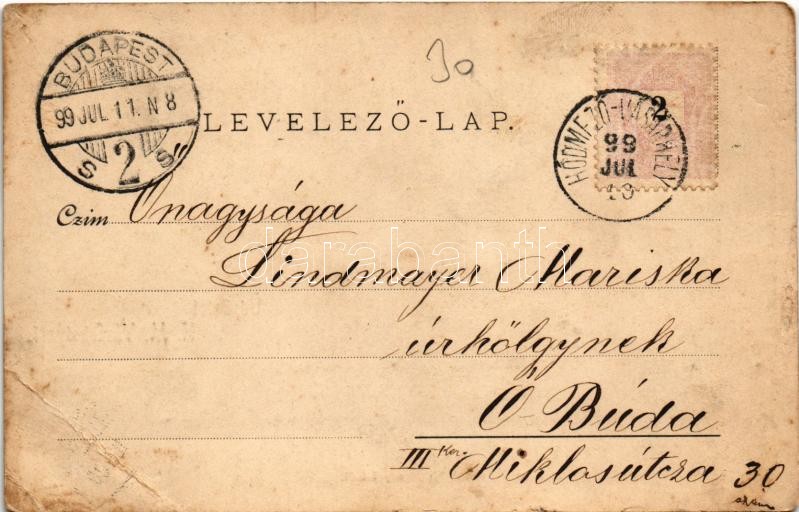 BUDAPEST
99 JUL 11. N 8
2
30
LEVELEZŐ-LAP.
2
HÓDMEZŐ-VÁSÁRHELY
99
JUL
10
Czim Őnagysága
Lindmayer Mariska
úrhölgynek
Ó-Búda
III Ker. Miklosútcza 30
szám
darabanth